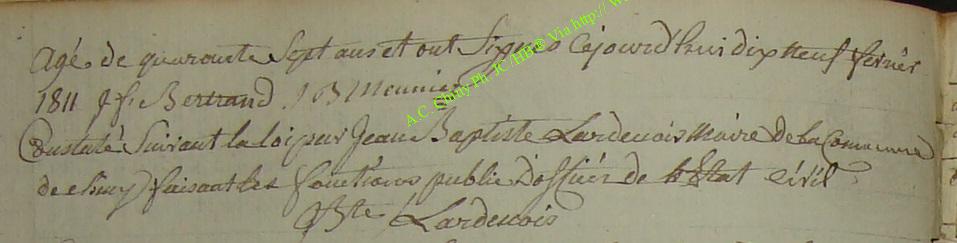 agé de quarante Sept ans et ont Signés Cejourd'hui dix neuf fevrier
1811 J f. Bertrand J B Meunier
Constaté Suivant la loi par Jean Baptiste Lardenois Maire De la Commune
de chiny faisant les fonctions public D'offiier de l'Etat civil
JBte Lardenois
A.C. Chiny Ph. JC /HB® Via http:// w